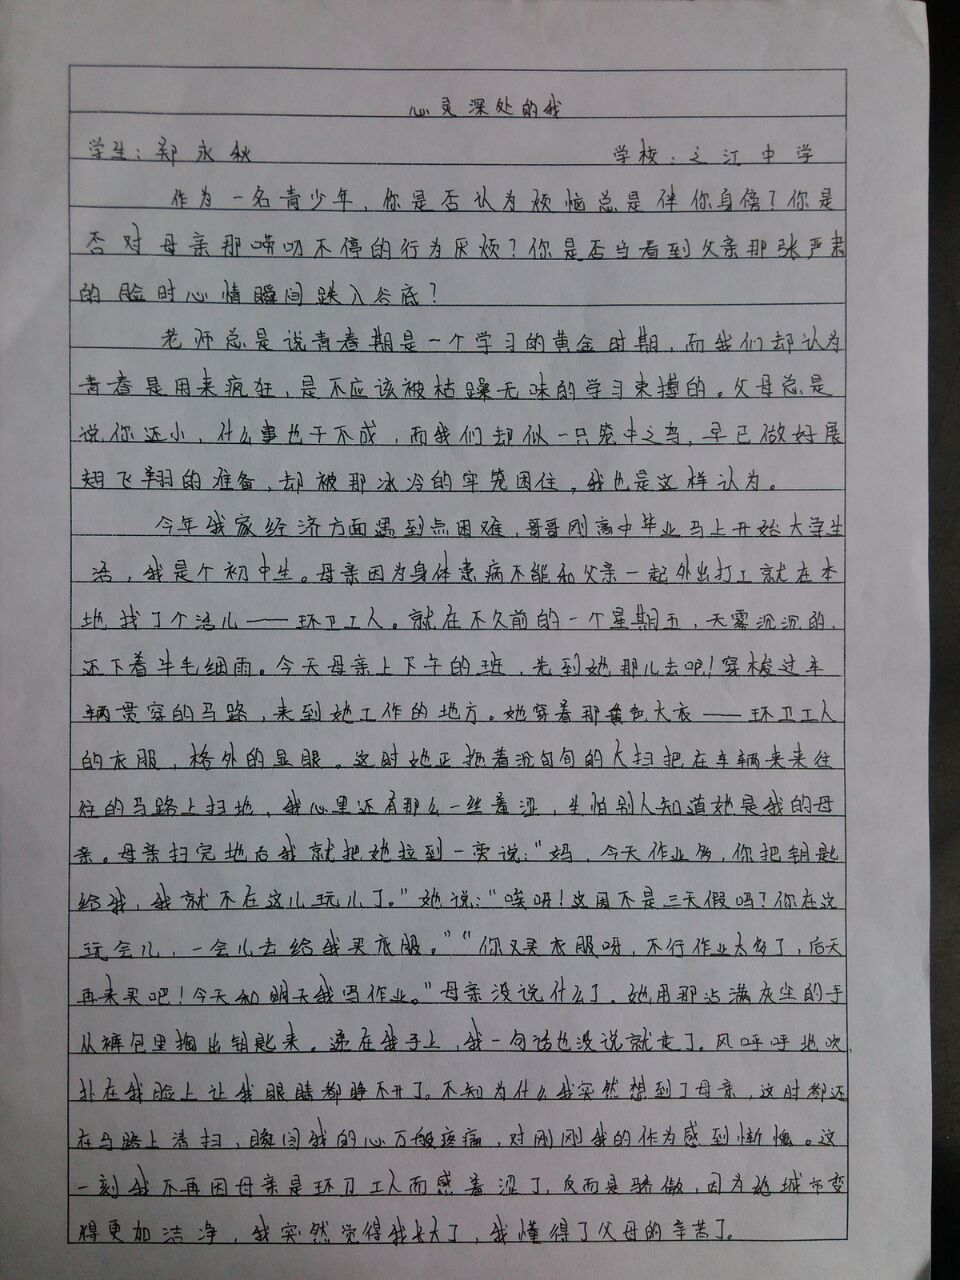 心灵深处的我
学生：郑永秋 学校：之江中学
作为一名青少年，你是否认为烦恼总是伴你身傍？你是
否对母亲那唠叨不停的行为厌烦？你是否当看到父亲那张严肃
的脸时心情瞬间跌入谷底？
老师总是说青春期是一个学习的黄金时期，而我们却认为
青春是用来疯狂，是不应该被枯躁无味的学习束搏的。父母总是
说你还小，什么事也干不成，而我们却似一只笼中之鸟，早已做好展
翅飞翔的准备，却被那冰冷的牢笼困住，我也是这样认为。
今年我家经济方面遇到点困难，哥哥刚高中毕业马上开始大学生
活，我是个初中生。母亲因为身体患病不能和父亲一起外出打工就在本
地找了个活儿——环卫工人。就在不久前的一个星期五，天雾沉沉的，
还下着牛毛细雨。今天母亲上下午的班，先到她那儿去吧！穿梭过车
辆贯穿的马路，来到她工作的地方。她穿着那黄色大衣——环卫工人
的衣服，格外的显眼。这时她正拖着沉甸甸的大扫把在车辆来来往
往的马路上扫地，我心里还有那么一丝羞涩，生怕别人知道她是我的母
亲。母亲扫完地后我就把她拉到一旁说：“妈，今天作业多，你把钥匙
给我，我就不在这儿玩儿了。”她说：“唉呀！这周不是三天假吗？你在这
玩会儿，一会儿去给我买衣服。”“你又买衣服呀，不行作业太多了，后天
再来买吧！今天和明天我写作业。”母亲没说什么了。她用那沾满灰尘的手
从裤包里掏出钥匙来。递在我手上，我一句话也没说就走了。风呼呼地吹，
扑在我脸上让我眼睛都睁不开了。不知为什么我突然想到了母亲，这时都还
在马路上清扫，瞬间我的心万般疼痛，对刚刚我的作为感到惭愧。这
一刻我不再因母亲是环卫工人而感羞涩了，反而是骄傲，因为她城市变
得更加洁净，我突然觉得我长大了，我懂得了父母的辛苦了。